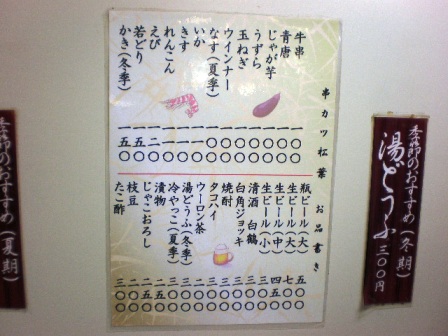 季節のおすすめ(冬期)
湯どうふ 三〇〇円
串カツ松葉 お品書き
牛串 一〇〇
青唐 一〇〇
じゃが芋 一〇〇
うずら 一〇〇
玉ねぎ 一〇〇
ウインナー 一〇〇
なす(夏季) 一〇〇
いか
きす
れんこん
えび 一二〇
若どり
かき(冬季) 一五〇
瓶ビール(大) 五〇〇
生ビール(大) 七〇〇
生ビール(中) 四五〇
生ビール(小)
清酒 白鶴
白角ジョッキ
焼酎
タコハイ
ウーロン茶
湯どうふ(冬季)
冷やっこ(夏季)
漬物
じゃこおろし
枝豆
たこ酢 三〇〇
季節のおすすめ(夏期)